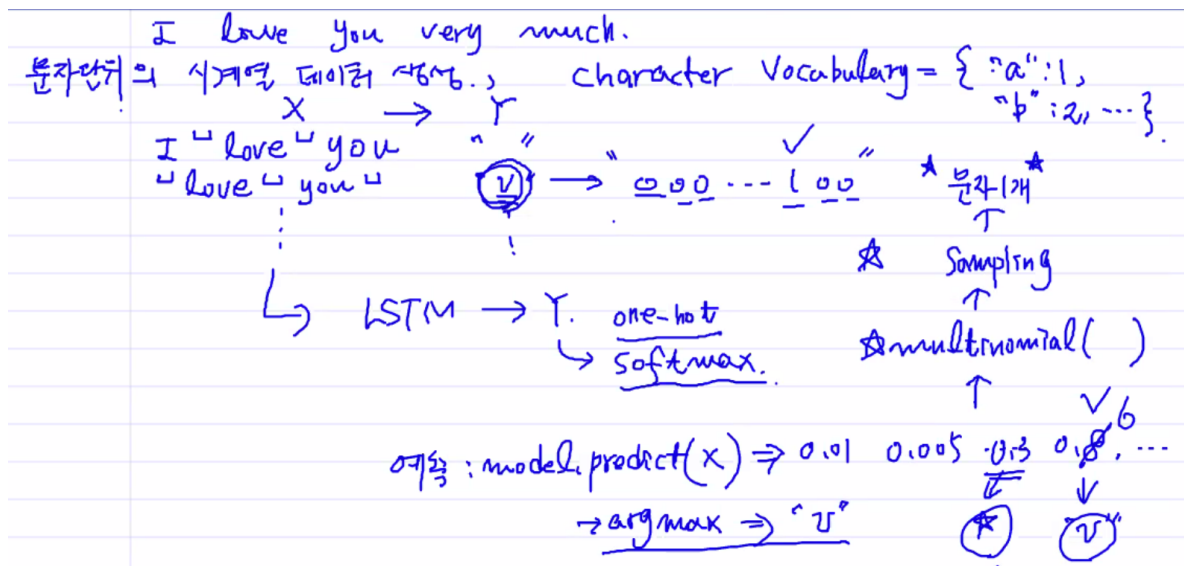 I love you very much.
문자단위의 시계열 데이터 생성., character Vocabulary = { "a":1,
"b":2, ...}.
X → Y
I ␣ love ␣ you " "
␣ love ␣ you ␣ v → " 0 0 0 ... 1 0 0 " ★ 문자 1개 ★
☆ Sampling
LSTM → Y. one-hot
☆ multinomial( )
↳ softmax.
예측 : model.predict(X) ⇒ 0.01 0.005 0.3 0.6 ...
→ argmax ⇒ "v" ☆ "v"